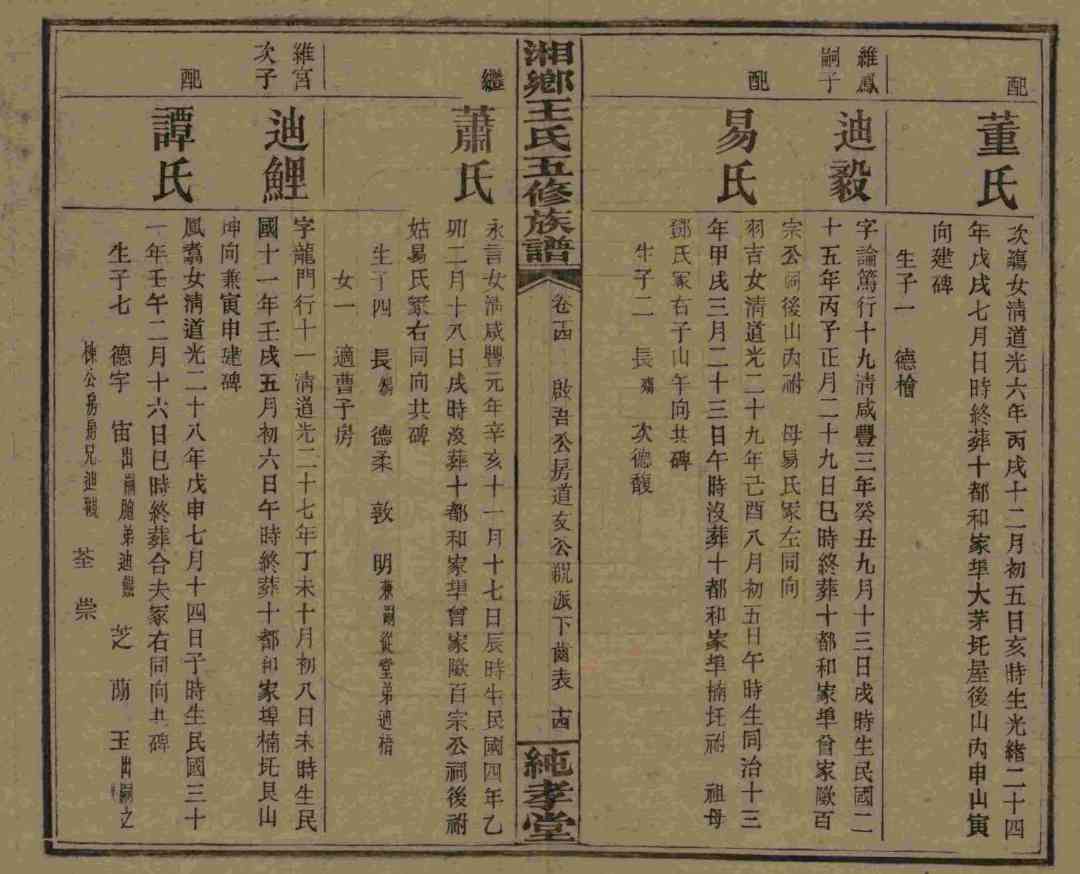 配
董氏
次瑒女淸道光六年丙戌十二月初五日亥時生光緒二十四
年戊戌七月日時終葬十都和家埠大茅坵屋後山內申山寅
向建碑
生子一 德檜
維鳳
嗣子
迪毅
字論篤行十九淸咸豐三年癸丑九月十三日戌時生民國二
十五年丙子正月二十九日巳時終葬十都和家埠曾家歐百
宗公祠後山內祔 母易氏冢左同向
配
易氏
羽吉女淸道光二十九年己酉八月初五日午時生同治十三
年甲戌三月二十三日午時沒葬十都和家埠楠坵祔 祖母
鄧氏冢右子山午向共碑
生子二 長殤 次德馥
湘鄉王氏五修族譜
卷十四
啟吾公房道友公親派下齒表 十四
純孝堂
繼
蕭氏
永言女淸咸豐元年辛亥十一月十七日辰時生民國四年乙
卯二月十八日戌時沒葬十都和家埠曾家歐百宗公祠後祔
姑易氏冢右同向共碑
生子四 長殤 德柔 敦 明兼嗣從堂弟迪楷
女一 適曹子房
維宮
次子
迪鯉
字龍門行十一淸道光二十七年丁未十月初八日未時生民
國十一年壬戌五月初六日午時終葬十都和家埠楠坵艮山
坤向兼寅申建碑
配
譚氏
鳳翥女淸道光二十八年戊申七月十四日子時生民國三十
一年壬午二月十六日巳時終葬合夫冢右同向共碑
生子七 德宇 宙出嗣胞弟迪 芝 蘭 玉出嗣之
棟公房房兄迪 荃 崇